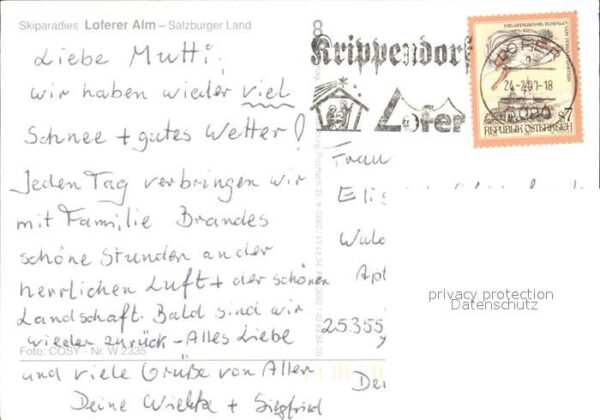 Skiparadies Loferer Alm – Salzburger Land
Liebe Mutti!
wir haben wieder viel
Schnee + gutes Wetter!
Jeden Tag verbringen wir
mit Familie Brandes
schöne Stunden an der
herrlichen Luft + der schönen
Landschaft. Bald sind wir
wieder zurück – Alles Liebe
und viele Grüße von Allen
Deine Wiebke + Siegfried
Foto: COSY - Nr. W 2335
Krippendorf
Lofer
LOFER
24-2.01-18
5090
S7
REPUBLIK ÖSTERREICH
Frau
25355
privacy protection
Datenschutz